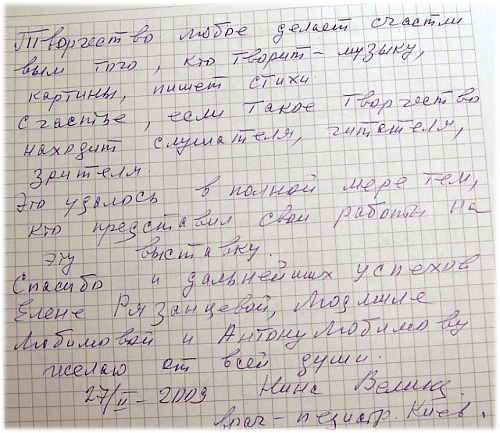 Творчество любое делает счастли
вым того, кто творит – музыку,
картины, пишет стихи.
Счастье, если такое творчество
находит слушателя, читателя,
зрителя
Это удалось в полной мере тем,
кто представил свои работы на
эту выставку.
Спасибо и дальнейших успехов
Елене Рязанцевой, Людмиле
Любимовой и Антону Любимову
желаю от всей души.
27/II – 2009 Нина
врач – педиатр. Киев.